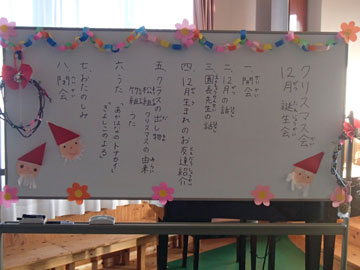 クリスマス会
12月誕生会
一、開会
二、12月の話
三、園長先生の話
四、12月生まれのお友達紹介
五、クラスの出し物
松組 クリスマスの由来
竹組 うた
六、うた あかはなのトナカイ
きよしこのよる
七、おたのしみ
八、閉会